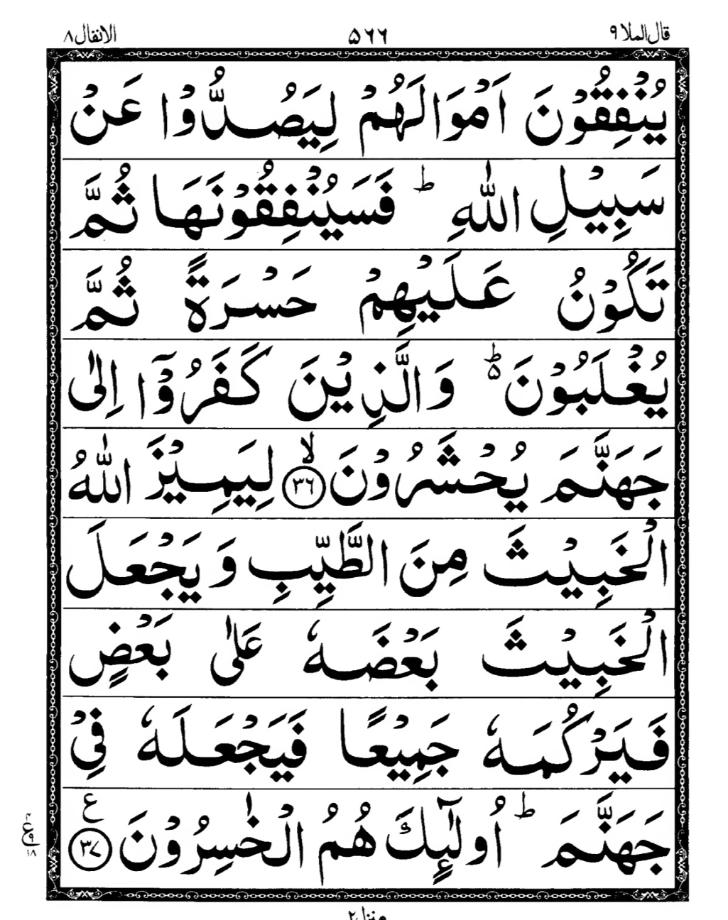 قال الملا ٩ ٥٦٦ الانفال ٨
يُنْفِقُوْنَ اَمْوَالَهُمْ لِيَصُدُّوْا عَنْ
سَبِيْلِ اللّٰهِ ؕ فَسَيُنْفِقُوْنَهَا ثُمَّ
تَكُوْنُ عَلَيْهِمْ حَسْرَةً ثُمَّ
يُغْلَبُوْنَ ۬ؕ وَالَّذِيْنَ كَفَرُوْۤا اِلٰى
جَهَنَّمَ يُحْشَرُوْنَ ۙ﴿۳۶﴾ لِيَمِيْزَ اللّٰهُ
الْخَبِيْثَ مِنَ الطَّيِّبِ وَيَجْعَلَ
الْخَبِيْثَ بَعْضَهٗ عَلٰى بَعْضٍ
فَيَرْكُمَهٗ جَمِيْعًا فَيَجْعَلَهٗ فِيْ
جَهَنَّمَ ؕ اُولٰٓئِكَ هُمُ الْخٰسِرُوْنَ ﴿۳۷﴾ ع
منزل ٢